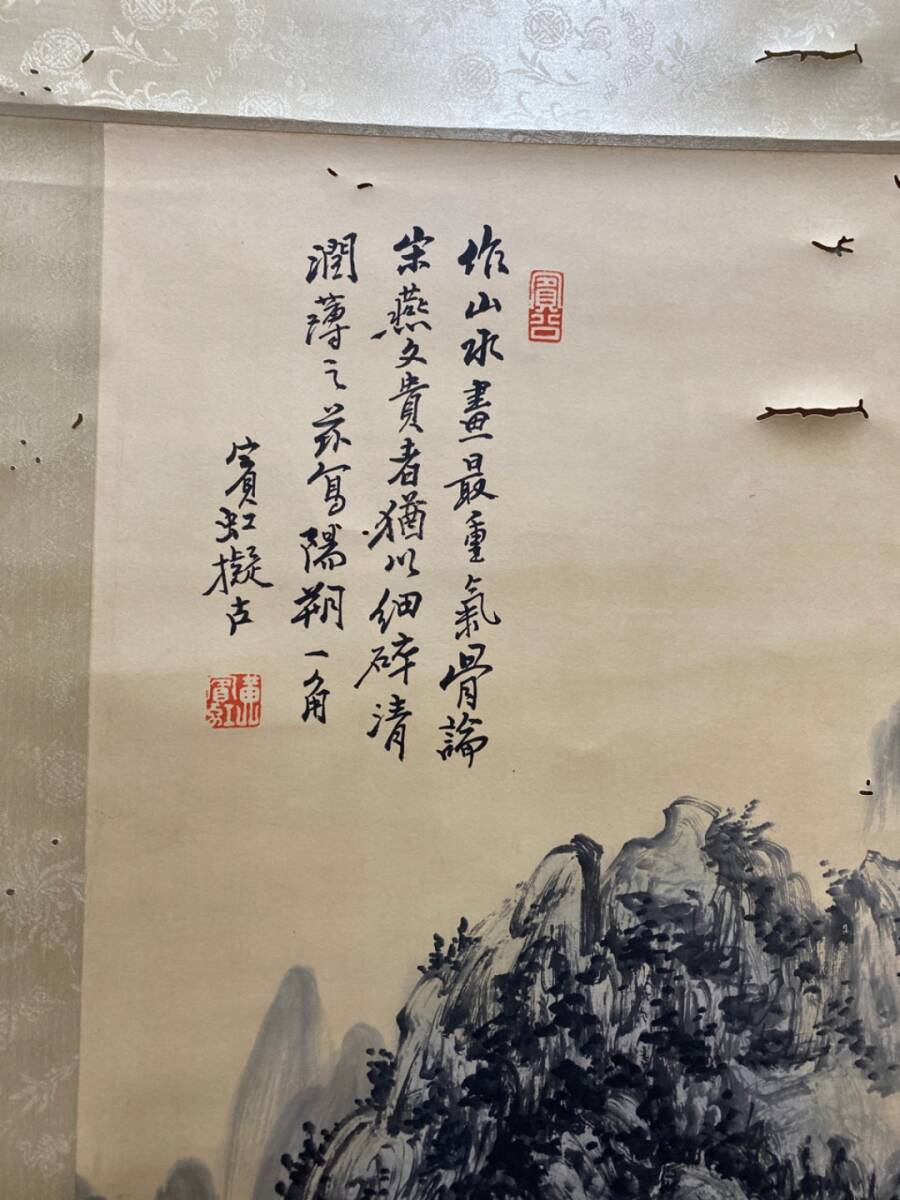 作山水畫最重氣骨論
宋燕文貴者猶以細碎清
潤薄之茲寫陽朔一角
賓虹擬古
黃賓虹